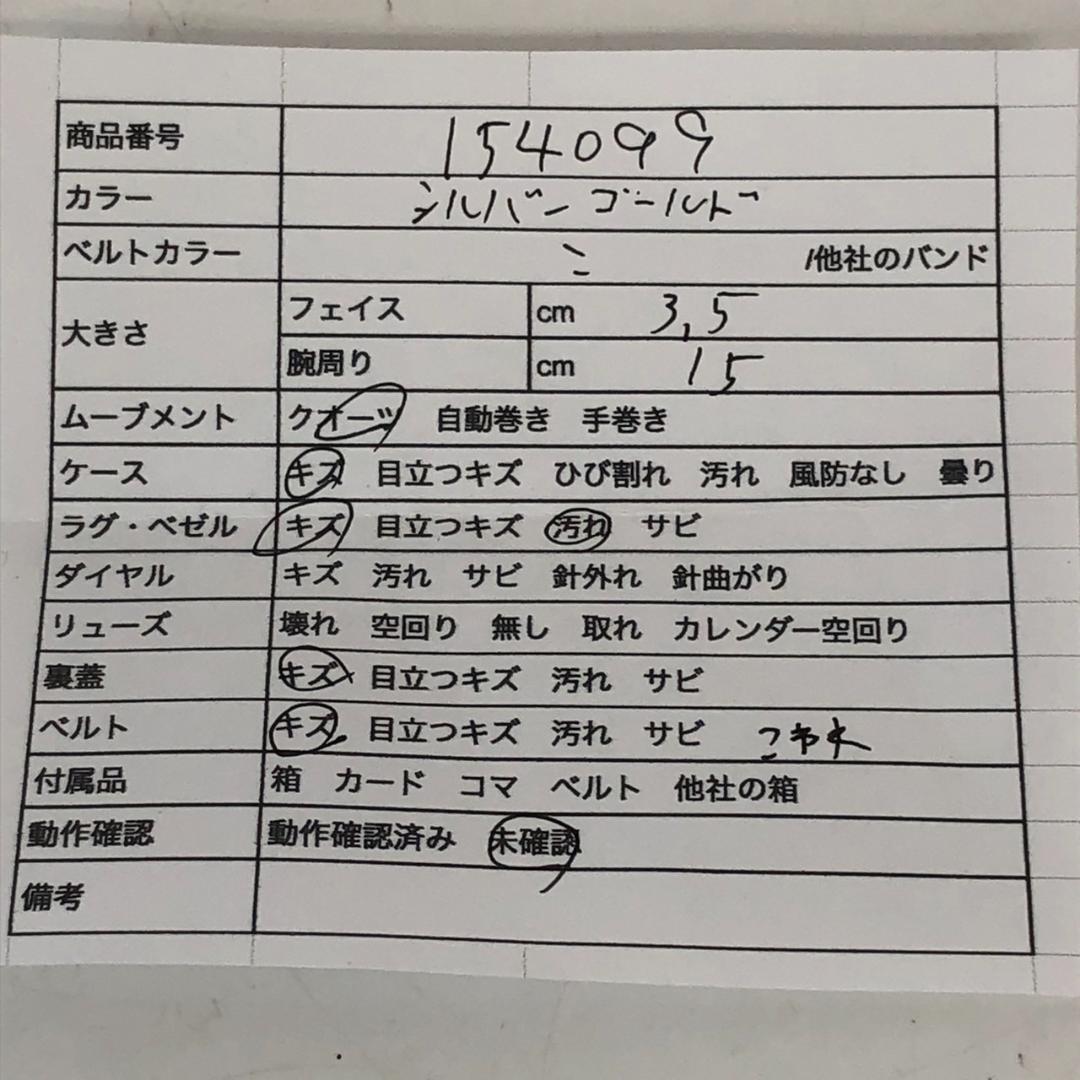 商品番号 154099
カラー シルバー ゴールド
ベルトカラー /他社のバンド
大きさ フェイス cm 3,5
腕周り cm 15
ムーブメント クオーツ 自動巻き 手巻き
ケース キズ 目立つキズ ひび割れ 汚れ 風防なし 曇り
ラグ・ベゼル キズ 目立つキズ 汚れ サビ
ダイヤル キズ 汚れ サビ 針外れ 針曲がり
リューズ 壊れ 空回り 無し 取れ カレンダー空回り
裏蓋 キズ 目立つキズ 汚れ サビ
ベルト キズ 目立つキズ 汚れ サビ
付属品 箱 カード コマ ベルト 他社の箱
動作確認 動作確認済み 未確認
備考